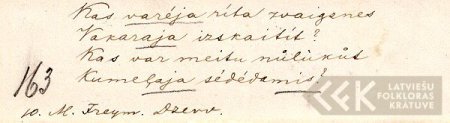 Kas varēja rīta zvaigenes
Vakaraja izskaitīt?
Kas var meitu nūlūkūt
Kumeļaja sēdēdamis?
163
10. M. Freym. Dzerv.
LATVIEŠU
FOLKLORAS
KRĀTUVE